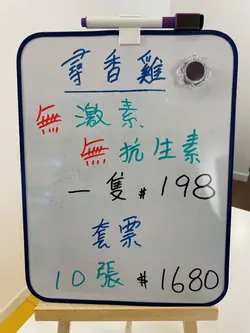 尋香雞
無激素
無抗生素
一隻 $198
套票
10張 $1680